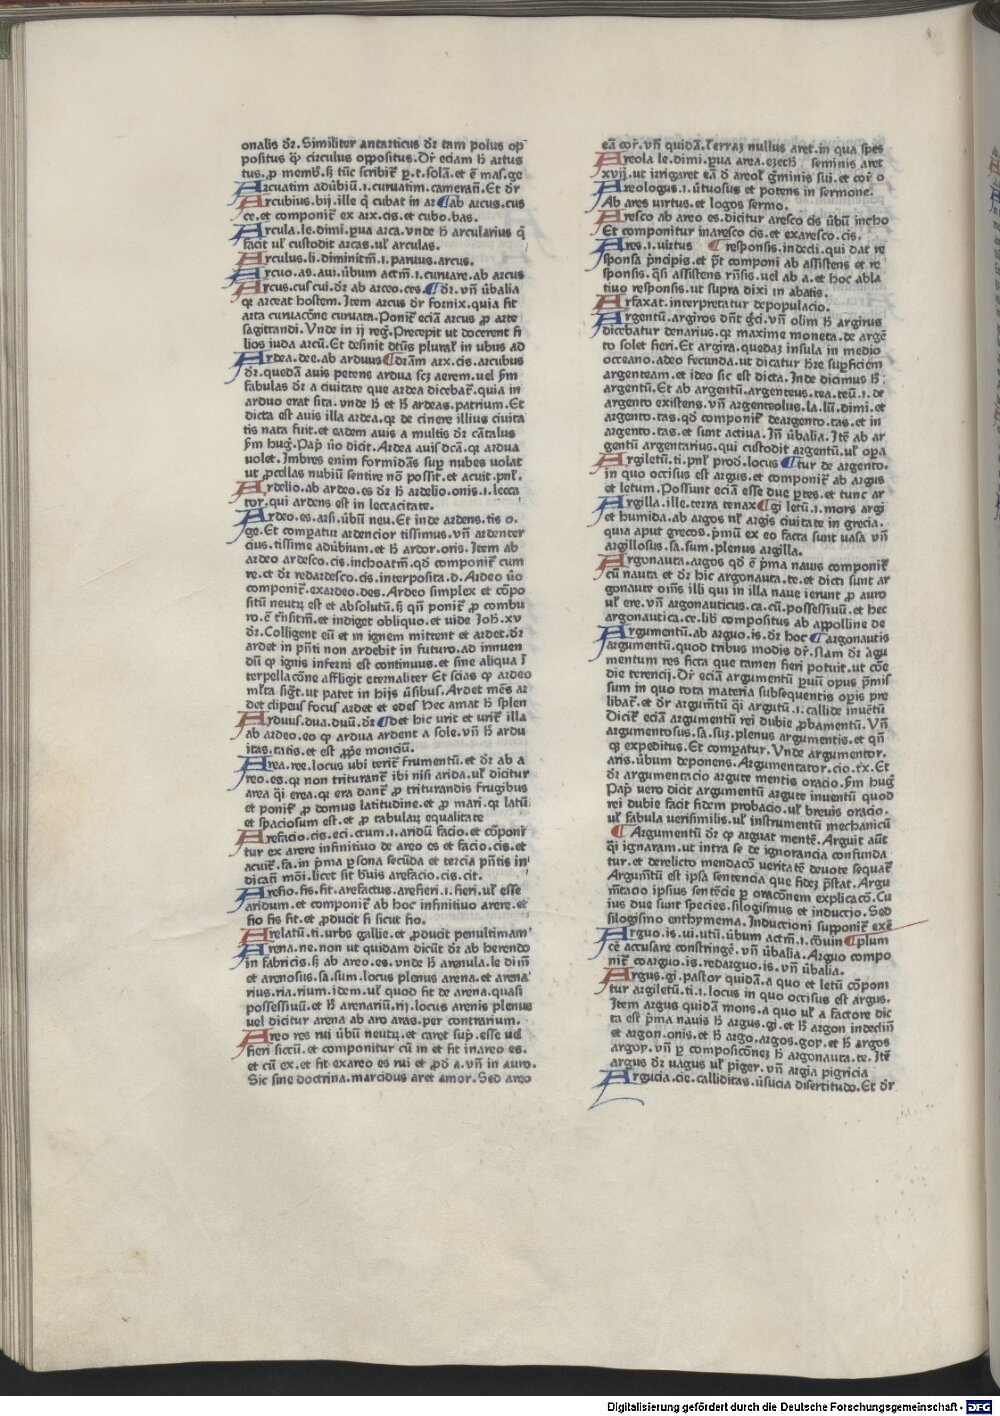 onalis dr̄. Similiter antarticus dr̄ tam polus op
positus qͥ circulus oppositus. Dr̄ eciam h̄ artus
tus. ꝓ memb. ꝫ tūc scribit᷑ ꝑ. t. solā. et ē mas. ge
Arcuatim adūbiū .i. curuatim. camerati. Et dr̄
Arcubius. bij. ille q̄ cubat in ar ¶ ab arcus. cus
ce. et componit᷑ ex arx. cis. et cubo. bas.
Arcula. le. dimi. ꝑua arca. vnde h̄ arcularius q̄
facit ul̓ custodit arcas. ul̓ arculas.
Arculus. li. diminitm̄ .i. paruus arcus.
Arcuo. as. aui. ūbum actm̄ .i. curuare. ab arcus
Arcus. cus cui. dr̄ ab arceo. ces. ¶ dr̄. vn̄ ūbalia
qꝛ arceat hostem. Item arcus dr̄ fornix. quia fit
arta curuacōne curuata. Ponit᷑ eciā arcus ꝓ arte
sagittandi. Vnde in ij reg̓. Precepit ut docerent fi
lios juda arcū. Et desinit dtūs plural̓ in ubus ad
Ardea. dee. ab arduus ¶ dr̄am arx. cis. arcubus
dr̄. quedā auis petens ardua scꝫ aerem. uel ẜm
fabulas dr̄ a ciuitate que ardea dicebat᷑. quia in
arduo erat sita. vnde h̄ et h̄ ardeas. patrium. Et
dicta est auis illa ardea. qꝛ de cinere illius ciuita
tis nata fuit. et eadem auis a multis dr̄ cātalus
ẜm hug᷑. Pap̓ ūo dicit. Ardea auis dc̄a. qꝛ ardua
uolet. Imbres enim formidās suꝑ nubes uolat
ut ꝓcellas nubiū sentire nō possit. et acuit. pnl̓.
Ardelio. ab ardeo. es dr̄ h̄ ardelio. onis .i. lecca
tor. qui ardens est in leccacitate.
Ardeo. es. arsi. ūbū neu. Et inde ardens. tis o.
ge. Et compatur ardencior tissimus. vn̄ ardenter
cius. tissime adūbium. et h̄ ardor. oris. Item ab
ardeo ardesco. cis. inchoatm̄. qd̓ componit᷑ cum
re. et dr̄ redardesco. cis. interposita. d. Ardeo ūo
componit᷑. exardeo. des. Ardeo simplex et cōpo
sitū neutꝝ est et absolutū. ꝫ qn̄ ponit᷑ ꝓ combu
ro. ē trn̄sitm̄. et indiget obliquo. et uide Joh̄. xv
dr̄. Colligent eū et in ignem mittent et ardet. dr̄
ardet in pn̄ti non ardebit in futuro. ad innuen
dū ꝙ ignis inferni est continuus. et sine aliqua ī
terpellacōne affligit eternaliter Et scias ꝙ ardeo
ml̓ta sigt̄. ut patet in hijs ūsibus. Ardet mēs ar
det clipeus focus ardet et edes hec amat h̄ splen
Arduus. dua. duū. dr̄ ¶ det hic urit et urit᷑ illa
ab ardeo. eo ꝙ ardua ardent a sole. vn̄ h̄ ardu
itas. tatis. et est ꝓpe monciū.
Area. ree. locus ubi terit᷑ frumentū. et dr̄ ab a
reo. es. qꝛ non triturant᷑ ibi nisi arida. ul̓ dicitur
area q̄i erea. qꝛ era dant᷑ ꝓ triturandis frugibus
et ponit᷑ ꝓ domus latitudine. et ꝓ mari. qꝛ latū
et spaciosum est. et ꝓ tabulaꝝ equalitate
Arefacio. cis. eci. ctum .i. aridū facio. et cōponi
tur ex arere infinitiuo de areo es et facio. cis. et
acuit᷑. fa. in p̄ma ꝑsona secūda et tercia pn̄tis in
dicatī mōi. licet sit b̄uis arefacio. cis. cit.
Arefio. fis. fit. arefactus. arefieri .i. fieri. ul̓ esse
aridum. et componit᷑ ab hoc infinitiuo arere. et
fio fis fit. et ꝓducit fi sicut fio.
Arelatū. ti. urbs gallie. et ꝓducit penultimam
Arena. ne. non ut quidam dicūt dr̄ ab herendo
in fabricis. ꝫ ab areo. es. vnde h̄ arenula. le dim̄
et arenosus. sa. sum. locus plenus arena. et arena
rius. ria. rium. idem. ul̓ quod fit de arena. quasi
possessiuū. et h̄ arenariū. rij. locus arenis plenus
uel dicitur arena ab aro aras. per contrarium.
Areo res rui ūbū neutꝝ. et caret suꝑ. esse uel
fieri siccū. et componitur cū in et fit inareo es.
et cū ex. et fit exareo es rui et ꝓd̓ a. vn̄ in auro.
Sic sine doctrina. marcidus aret amor. Sed areo
eā cor᷑. vn̄ quidā. Terraꝫ nullus aret. in qua spes
Areola le. dimi. ꝑua area. ezech̄ seminis aret
xvij. ut irrigaret eā d areol̓ ḡminis sui. et cor᷑ o
Areologus .i. ūtuosus et potens in sermone.
Ab ares uirtus. et logos sermo.
Aresco ab areo es. dicitur aresco cis ūbū incho
Et componitur inaresco cis. et exaresco. cis.
Ares .i. uirtus ¶ responsis. indecli. qui dat re
sponsa p̄ncipis. et p̄t componi ab assistens et re
sponsis. q̄si assistens rn̄sis. uel ab a. et hoc abla
tiuo responsis. ut supra dixi in abatis.
Arfaxat. interpretatur depopulacio.
Argentū. argiros dn̄t ḡci. vn̄ olim h̄ argirus
dicebatur denarius. qꝛ maxime moneta. de argē
to solet fieri. Et argira. quedaꝫ insula in medio
occeano. adeo fecunda. ut dicatur h̄re suꝑficiem
argenteam. et ideo sic est dicta. Inde dicimus h̄
argentū. Et ab argentū. argenteus. tea. teū .i. de
argento existens. vn̄ argenteolus. la. lū. dimi. et
argento. tas. qd̓ componit᷑ deargento. tas. et in
argento. tas. et sunt actiua. Jn̄ ūbalia. Itē ab ar
gentū argentarius. qui custodit argentū. ul̓ oꝑa
Argiletū. ti. pnl̓ prod. locus ¶ tur de argento.
in quo occisus est argus. et componit᷑ ab argus
et letum. Possunt eciā esse due ꝑtes. et tunc ar
Argilla. ille. terra tenax ¶ gi letū .i. mors argi
et humida. ab argos ul̓ argis ciuitate in grecia.
quia aput grecos. p̄mū ex eo facta sunt uasa vn̄
argillosus. sa. sum. plenus argilla.
Argonauta. argos qd̓ ē p̄ma nauis componit᷑
cū nauta et dr̄ hic argonauta. te. et dicti sunt ar
gonaute om̄s illi qui in illa naue ierunt ꝓ auro
ul̓ ere. vn̄ argonauticus. ca. cū. possessiuū. et hec
argonautica. ce. lib̓ compositus ab appolline de
Argumentū. ab arguo. is. dr̄ hoc ¶ argonautis
argumentū. quod tribus modis dr̄. Nam dr̄ agu
mentum res ficta que tamen fieri potuit. ut cōe
die terencij. Dr̄ eciā argumentū ꝑuū opus p̄mis
sum in quo tota materia subsequentis oꝑis pre
libat᷑. et dr̄ argum̄tū q̄i argutū .i. callide inuētū
Dicit᷑ eciā argumentū rei dubie ꝓbamentū. Vn̄
argumentosus. sa. suꝫ. plenus argumentis. et qn̄
qꝫ expeditus. Et compatur. Vnde argumentor.
aris. ūbum deponens. Argumentator. cio. tx̄. Et
dr̄ argumentacio argute mentis oracio. ẜm hug᷑
Pap̓ uero dicit argumentū argute inuentū quod
rei dubie facit fidem probacio. ul̓ breuis oracio.
ul̓ fabula uerisimilis. ul̓ instrumentū mechanicū
¶ Argumentū dr̄ ꝙ arguat mentē. Arguit aūt
q̄i ignaram. ut intra se de ignorancia confunda
tur. et derelicto mendacō ueritatē deuote sequat᷑
Argum̄tū est ipsa sentencia que fidez p̄stat. Argu
m̄tacio ipsius sentēcie ꝑ oracōnem explicacō. Cu
ius due sunt species. silogismus et induccio. Sed
silogismo enthymema. Induccioni supponit᷑ exē
Arguo. is. ui. utū. ūbum actm̄ .i. cōuin ¶ plum
cē accusare constringē. vn̄ ūbalia. Arguo compo
nit᷑ coarguo. is. redarguo. is. vn̄ ūbalia.
Argus. gi. pastor quidā. a quo et letū cōponi
tur argiletū. ti .i. locus in quo occisus est argus.
Item argus quidā mons. a quo ul̓ a factore dic
ta est p̄ma nauis h̄ argus. gi. et h̄ argon indeclin̄
et argon. onis. et h̄ argo. argos. goy. et h̄ argos
argoy. vn̄ ꝑ composicōneꝫ h̄ argonauta. te. Itē
argus dr̄ uagus ul̓ piger. vn̄ argia pigricia
Argucia. cie. calliditas. ūsucia disertitudo. Et dr̄
Digitalisierung gefördert durch die Deutsche Forschungsgemeinschaft - DFG